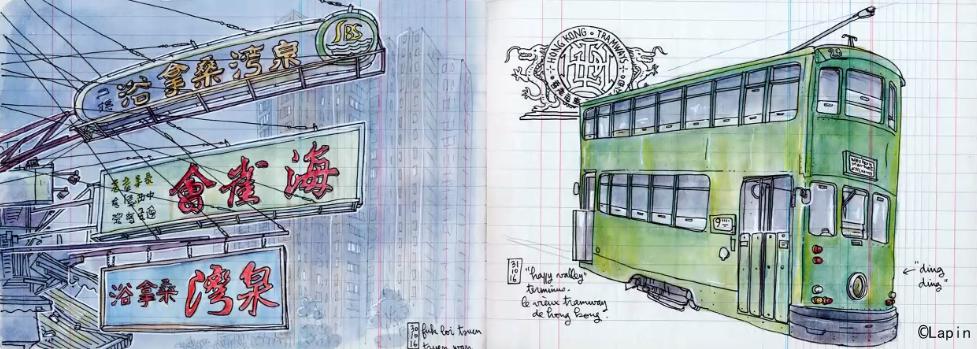 JBS
泉湾桑拿浴
二樓
海雀會
泉灣
桑拿浴
30
10
16
fuk loi tsuen
tsuen wan
HONG KONG TRAMWAYS
31
10
16
"happy valley"
terminus.
le vieux tramway
de hong kong.
← "ding
ding"
©Lapin